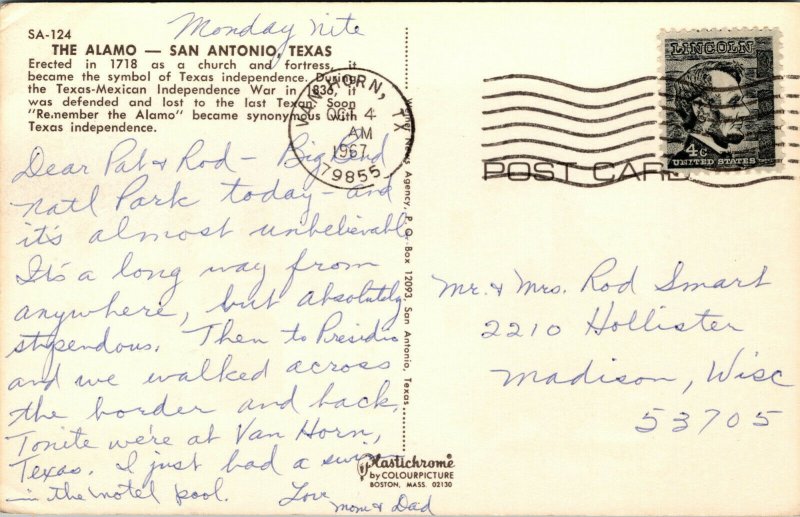 Monday nite
SA-124
THE ALAMO — SAN ANTONIO, TEXAS
Erected in 1718 as a church and fortress, it
became the symbol of Texas independence. During
the Texas-Mexican Independence War in 1836, it
was defended and lost to the last Texan. Soon
"Remember the Alamo" became synonymous with
Texas independence.
VAN HORN, TX
OCT 4
AM
1967
79855
LINCOLN
4c
UNITED STATES
POST CARD
Dear Pat & Rod - Big Bend
Natl Park today - and
it's almost unbelievable
It's a long way from
anywhere, but absolutely
stupendous. Then to Presidio
and we walked across
the border and back.
Tonite we're at Van Horn,
Texas. I just had a swim
in the motel pool. Love
Mom & Dad
News Agency, P. O. Box 12093, San Antonio, Texas
Mr. & Mrs. Rod Smart
2210 Hollister
Madison, Wisc
53705
Plastichrome
by COLOURPICTURE
BOSTON, MASS. 02130